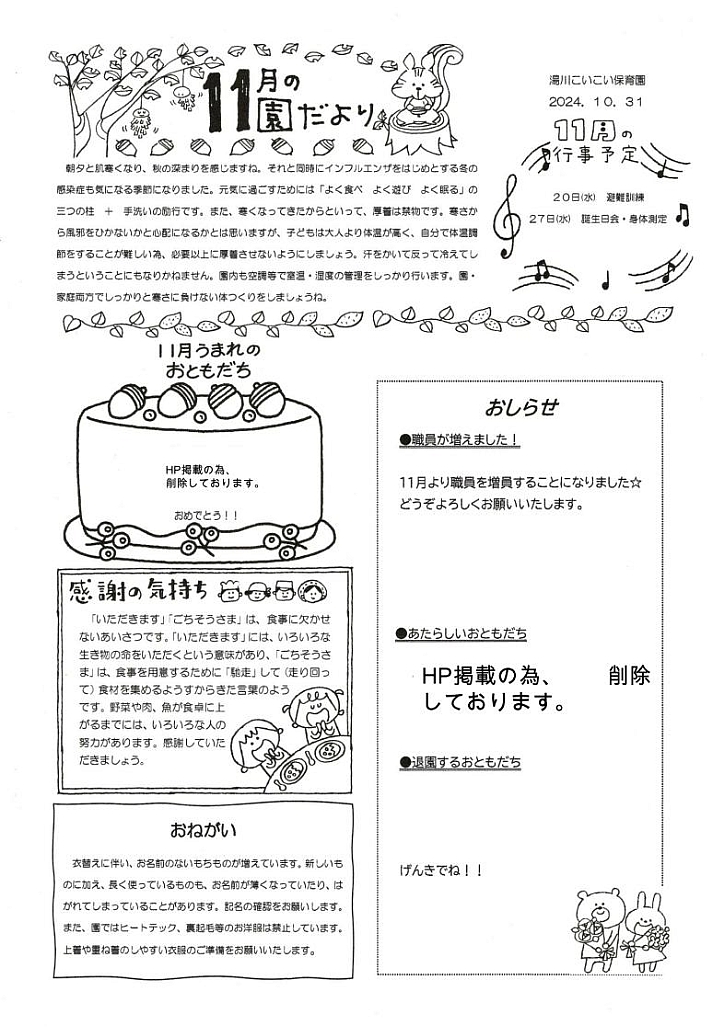 11月の
園だより
湯川こいこい保育園
2024．10．31
11月の
行事予定
20日(水)　避難訓練
27日(水)　誕生日会・身体測定
朝夕と肌寒くなり、秋の深まりを感じますね。それと同時にインフルエンザをはじめとする冬の
感染症も気になる季節になりました。元気に過ごすためには「よく食べ　よく遊び　よく眠る」の
三つの柱　＋　手洗いの励行です。また、寒くなってきたからといって、厚着は禁物です。寒さか
ら風邪をひかないかと心配になるかとは思いますが、子どもは大人より体温が高く、自分で体温調
節をすることが難しい為、必要以上に厚着させないようにしましょう。汗をかいて反って冷えてし
まうということにもなりかねません。園内も空調等で室温・湿度の管理をしっかり行います。園・
家庭両方でしっかりと寒さに負けない体つくりをしましょうね。
11月うまれの
おともだち
HP掲載の為、
削除しております。
おめでとう！！
感謝の気持ち
「いただきます」「ごちそうさま」は、食事に欠かせ
ないあいさつです。「いただきます」には、いろいろな
生き物の命をいただくという意味があり、「ごちそうさ
ま」は、食事を用意するために「馳走」して（走り回っ
て）食材を集めるようすからきた言葉のよう
です。野菜や肉、魚が食卓に上
がるまでには、いろいろな人の
努力があります。感謝していた
だきましょう。
おねがい
衣替えに伴い、お名前のないもちものが増えています。新しいも
のに加え、長く使っているものも、お名前が薄くなっていたり、は
がれてしまっていることがあります。記名の確認をお願いします。
また、園ではヒートテック、裏起毛等のお洋服は禁止しています。
上着や重ね着のしやすい衣服のご準備をお願いいたします。
おしらせ
●職員が増えました！
11月より職員を増員することになりました☆
どうぞよろしくお願いいたします。
●あたらしいおともだち
HP掲載の為、　　削除
しております。
●退園するおともだち
げんきでね！！